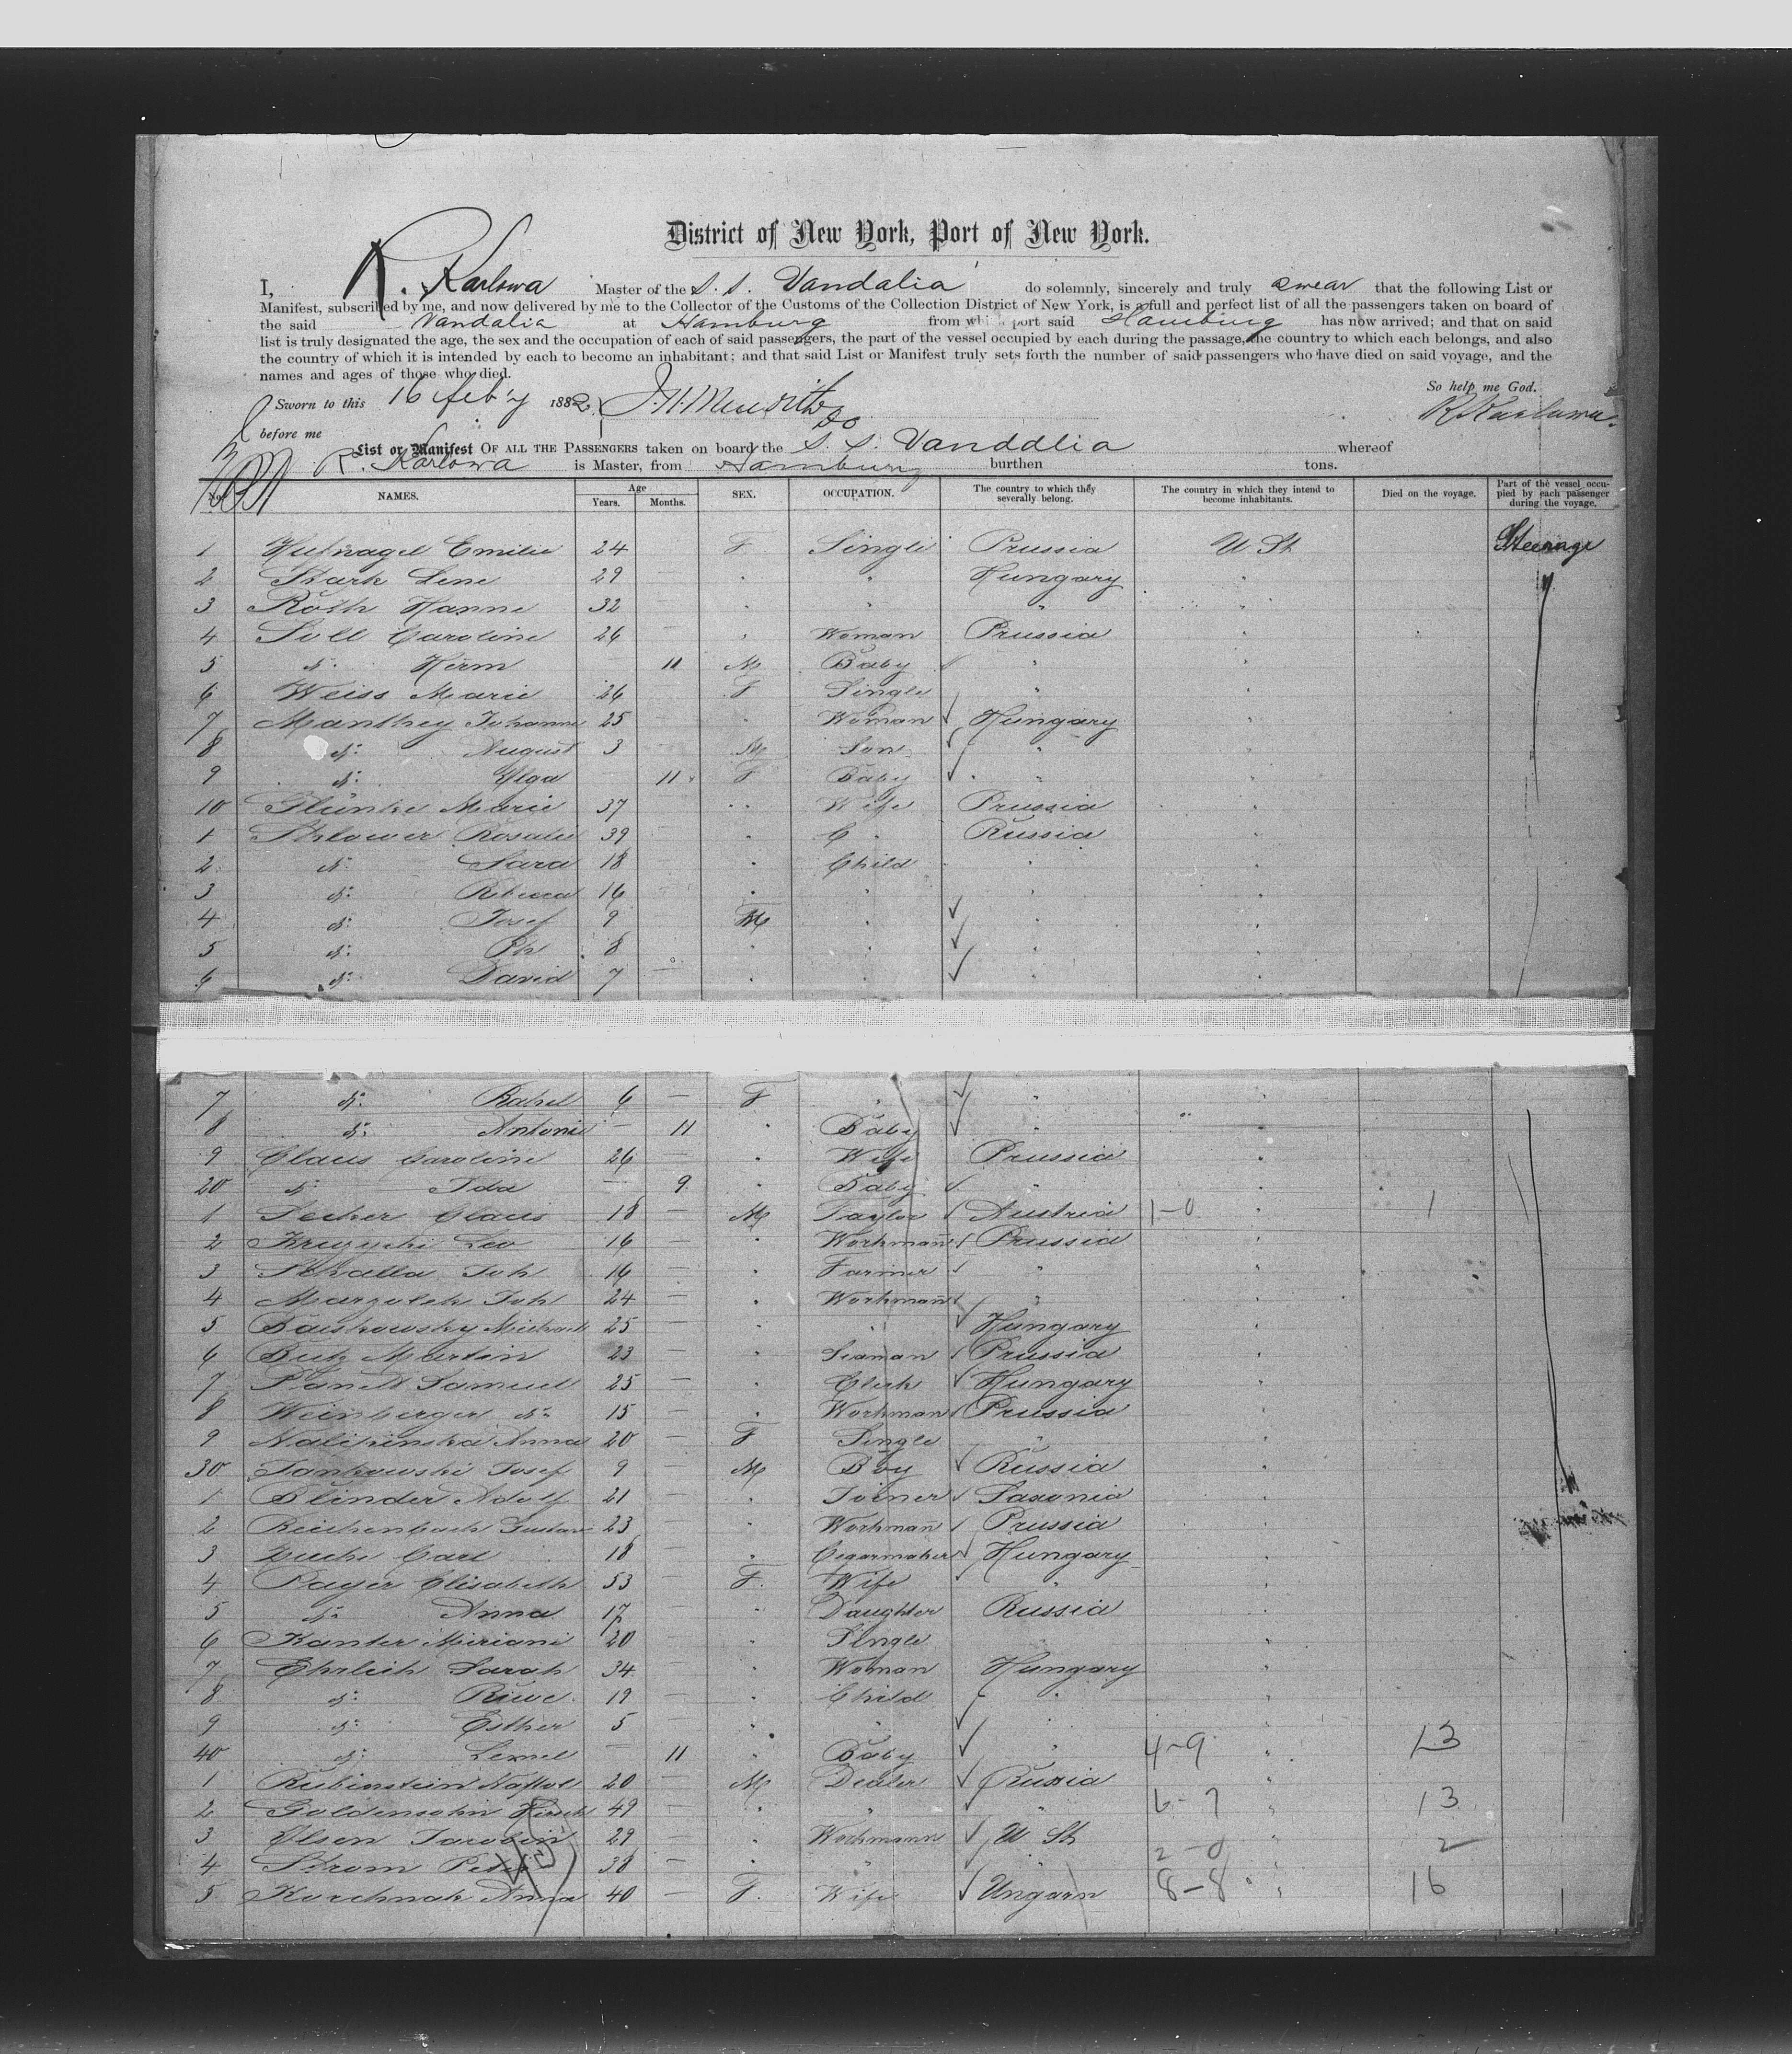 District of New York, Port of New York.
I, R. Karlowa Master of the S. S. Vandalia do solemnly, sincerely and truly swear that the following List or
Manifest, subscribed by me, and now delivered by me to the Collector of the Customs of the Collection District of New York, is a full and perfect list of all the passengers taken on board of
the said Vandalia at Hamburg from which port said Hamburg has now arrived; and that on said
list is truly designated the age, the sex and the occupation of each of said passengers, the part of the vessel occupied by each during the passage, the country to which each belongs, and also
the country of which it is intended by each to become an inhabitant; and that said List or Manifest truly sets forth the number of said passengers who have died on said voyage, and the
names and ages of those who died.
So help me God.
Sworn to this 16 feb'y 1882 R Karlowa.
before me
List or Manifest OF ALL THE PASSENGERS taken on board the S. S. Vandalia whereof
R. Karlowa is Master, from Hamburg burthen tons.
No. NAMES. Age Years. Months. SEX. OCCUPATION. The country to which they severally belong. The country in which they intend to become inhabitants. Died on the voyage. Part of the vessel occupied by each passenger during the voyage.
1 Hufnagel Emilie 24 F Single Prussia U St Steerage
2 Stark Lene 29 — " " Hungary "
3 Roth Hanne 32 " " " "
4 Soll Caroline 26 — " Woman Prussia "
5 do. Herm — 11 M Baby " "
6 Weiss Marie 26 — F Single " "
7 Manthey Johanne 25 — " Woman Hungary "
8 do. August 3 — M Son " "
9 do. Olga — 11 F Baby " "
10 Plünke Marie 37 " Wife Prussia "
1 Sklower Rosalie 39 — " " Russia "
2 do. Sara 18 — " Child " "
3 do. Rebecca 16 — " " " "
4 do. Josef 9 M " " "
5 do. Ph 8 " " " "
6 do. David 7 — " " " "
7 do. Rahel 6 — F " " "
8 do. Antonie — 11 " Baby " "
9 Claus Caroline 26 — " Wife Prussia "
20 do. Ida — 9 " Baby " "
1 Secher Claus 18 — M Taylor Austria 1-0 " 1
2 Kruzycki Leo 16 — " Workmann Prussia "
3 Schalla Joh 16 — " Farmer " "
4 Margolek Joh 24 — " Workmann " "
5 Baiskowsky Michael 25 — " " Hungary "
6 Butz Martin 23 — " Seaman Prussia "
7 Samuel 25 — " Clerk Hungary "
8 Weinberger do. 15 — " Workman Prussia "
9 Nalikinska Anna 20 — F Single " "
30 Jankowski Josef 9 — M Boy Russia "
1 Blinder Adolf 21 — " Joiner Saxonia "
2 Reichenbach Gustav 23 — " Workmann Prussia "
3 Carl 18 — " Cegarmaker Hungary "
4 Payer Elisabeth 53 — F. Wife " "
5 do. Anna 17 — " Daughter Russia "
6 Kanter Miriani 20 — " Single " "
7 Ehrlich Sarah 34 — " Woman Hungary "
8 do. Riwe 19 — " Child " "
9 do. Esther 5 — " " " "
40 do. Lemel — 11 " Baby " 4-9 " 13
1 Rubinstein 20 — M Dealer Russia "
2 Goldensohn Hirsch 49 — " " " 6-7 " 13
3 Olsen 29 — " Workmann U St "
4 Strom Peter 38 — " " " 2-0 " 2
5 Kurchnak Anna 40 — F. Wife Ungarn 8-8 " 16